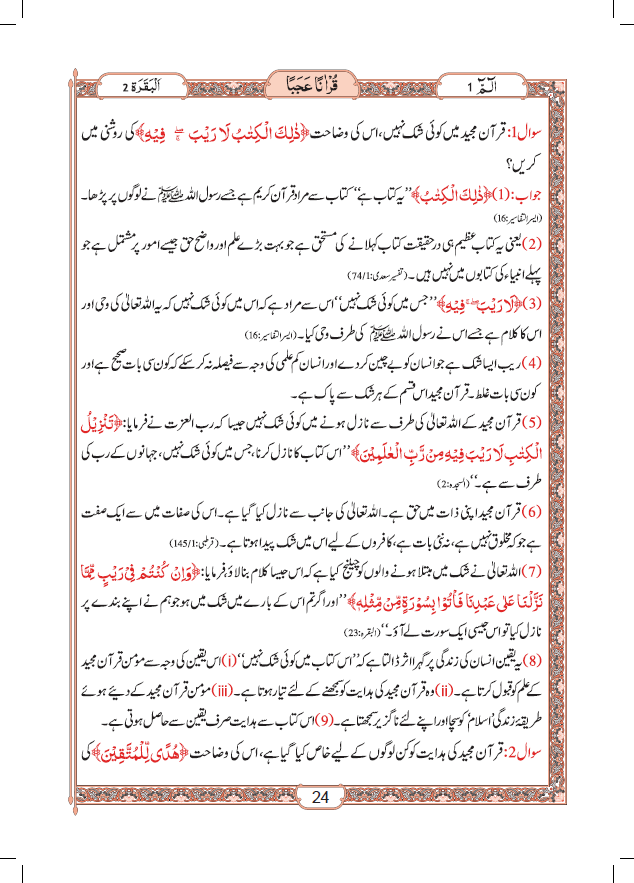 الٓمّٓ 1
قُرْاٰنًا عَجَبًا
اَلْبَقَرَة 2
سوال1: قرآن مجید میں کوئی شک نہیں، اس کی وضاحت ﴿ذٰلِكَ الْكِتٰبُ لَا رَيْبَ ۛۖ فِيْهِ﴾ کی روشنی میں
کریں؟
جواب: (1) ﴿ذٰلِكَ الْكِتٰبُ﴾ ’’یہ کتاب ہے‘‘ کتاب سے مراد قرآن کریم ہے جسے رسول اللہ ﷺ نے لوگوں پر پڑھا۔
(ایسر التفاسیر:16)
(2) یعنی یہ کتاب عظیم ہی درحقیقت کتاب کہلانے کی مستحق ہے جو بہت بڑے علم اور واضح حق جیسے امور پر مشتمل ہے جو
پہلے انبیاء کی کتابوں میں نہیں ہیں۔ (تفسیر سعدی:74/1)
(3) ﴿لَا رَيْبَ ۛۖ فِيْهِ﴾ ’’جس میں کوئی شک نہیں‘‘ اس سے مراد ہے کہ اس میں کوئی شک نہیں کہ یہ اللہ تعالیٰ کی وحی اور
اس کا کلام ہے جسے اس نے رسول اللہ ﷺ کی طرف وحی کیا۔ (ایسر التفاسیر:16)
(4) ریب ایسا شک ہے جو انسان کو بے چین کر دے اور انسان کم علمی کی وجہ سے فیصلہ نہ کر سکے کہ کون سی بات صحیح ہے اور
کون سی بات غلط۔ قرآن مجید اس قسم کے ہر شک سے پاک ہے۔
(5) قرآن مجید کے اللہ تعالیٰ کی طرف سے نازل ہونے میں کوئی شک نہیں جیسا کہ رب العزت نے فرمایا: ﴿تَنْزِيْلُ
الْكِتٰبِ لَا رَيْبَ فِيْهِ مِنْ رَّبِّ الْعٰلَمِيْنَ﴾ ’’اس کتاب کا نازل کرنا، جس میں کوئی شک نہیں، جہانوں کے رب کی
طرف سے ہے۔‘‘ (السجدہ:2)
(6) قرآن مجید اپنی ذات میں حق ہے۔ اللہ تعالیٰ کی جانب سے نازل کیا گیا ہے۔ اس کی صفات میں سے ایک صفت
ہے جو کہ مخلوق نہیں ہے، نہ نئی بات ہے، کافروں کے لیے اس میں شک پیدا ہوتا ہے۔ (قرطبی:145/1)
(7) اللہ تعالیٰ نے شک میں مبتلا ہونے والوں کو چیلنج کیا ہے کہ اس جیسا کلام بنا لاؤ فرمایا: ﴿وَاِنْ كُنْتُمْ فِيْ رَيْبٍ مِّمَّا
نَزَّلْنَا عَلٰى عَبْدِنَا فَاْتُوْا بِسُوْرَةٍ مِّنْ مِّثْلِهٖ﴾ ’’اور اگر تم اس کے بارے میں شک میں ہو جو ہم نے اپنے بندے پر
نازل کیا تو اس جیسی ایک سورت لے آؤ۔‘‘ (البقرہ:23)
(8) یہ یقین انسان کی زندگی پر گہرا اثر ڈالتا ہے کہ ’’اس کتاب میں کوئی شک نہیں‘‘ (i) اس یقین کی وجہ سے مومن قرآن مجید
کے علم کو قبول کرتا ہے۔ (ii) وہ قرآن مجید کی ہدایت کو سمجھنے کے لئے تیار ہوتا ہے۔ (iii) مومن قرآن مجید کے دیئے ہوئے
طریقۂ زندگی ’اسلام‘ کو سچا اور اپنے لئے ناگزیر سمجھتا ہے۔ (9) اس کتاب سے ہدایت صرف یقین سے حاصل ہوتی ہے۔
سوال2: قرآن مجید کی ہدایت کو کن لوگوں کے لیے خاص کیا گیا ہے، اس کی وضاحت ﴿هُدًى لِّلْمُتَّقِيْنَ﴾ کی
24